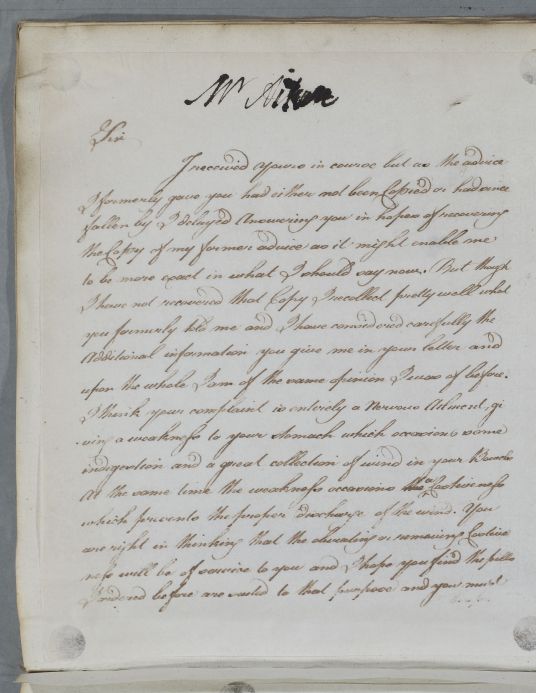 Mr Aitken
Sir
I received yours in course but as the advice
I formerly gave you had either not been Copied or had since
fallen by I delayed Answering you in hopes of recovering
the Copy of my former advice as it might enable me
to be more exact in what I should say now. But though
I have not recovered that Copy I recollect pretty well what
you formerly told me and I have considered carefully the
Additional information you give me in your letter and
upon the whole I am of the same opinion I was of before.
I think your complaint is entirely a Nervous Ailment, gi
ving a weakness to your stomach which occasions some
indigestion and a great collection of wind in your Bowels
At the same time the weakness occasions a Costiveness
which prevents the proper discharge of the wind. You
are right in thinking that the obviating or removing Costive
ness will be of service to you and I hope you find the pills
I ordered before are suited to that purpose and you must